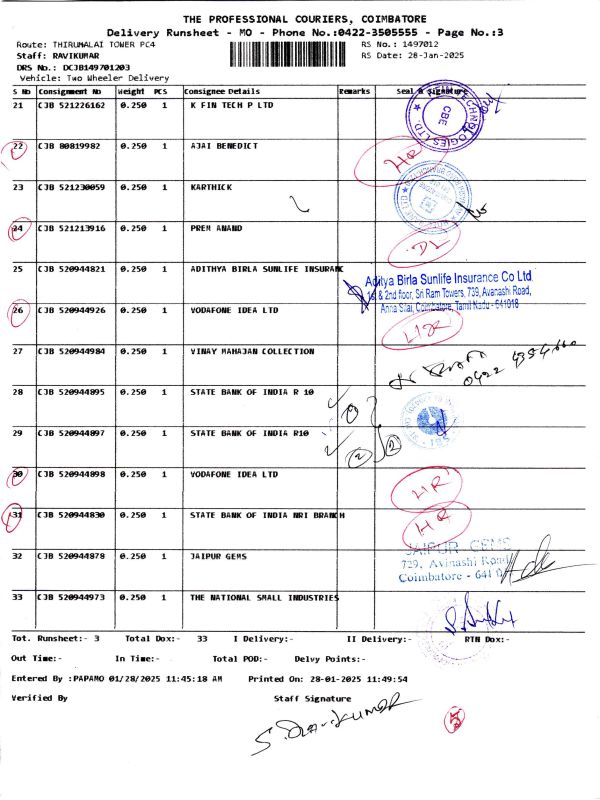 THE PROFESSIONAL COURIERS, COIMBATORE
Delivery Runsheet - MO - Phone No.:0422-3505555 - Page No.:3
Route: THIRUMALAI TOWER PC4 RS No.: 1497012
Staff: RAVIKUMAR RS Date: 28-Jan-2025
DRS No.: DCJB149701203
Vehicle: Two Wheeler Delivery
S No Consignment No Weight PCS Consignee Details Remarks Seal & Signature
21 CJB 521226162 0.250 1 K FIN TECH P LTD
CBE
22 CJB 80819982 0.250 1 AJAI BENEDICT
23 CJB 521230059 0.250 1 KARTHICK
24 CJB 521213916 0.250 1 PREM ANAND
DL
25 CJB 520944821 0.250 1 ADITHYA BIRLA SUNLIFE INSURANC
Aditya Birla Sunlife Insurance Co Ltd
1st & 2nd floor, Sri Ram Towers, 739, Avanashi Road,
Anna Silai, Coimbatore, Tamil Nadu - 641018
26 CJB 520944926 0.250 1 VODAFONE IDEA LTD
27 CJB 520944984 0.250 1 VINAY MAHAJAN COLLECTION
0422
28 CJB 520944895 0.250 1 STATE BANK OF INDIA R 10
29 CJB 520944897 0.250 1 STATE BANK OF INDIA R10
2 2
30 CJB 520944898 0.250 1 VODAFONE IDEA LTD
31 CJB 520944830 0.250 1 STATE BANK OF INDIA NRI BRANCH
32 CJB 520944878 0.250 1 JAIPUR GEMS
JAIPUR GEMS
729, Avinashi Road
Coimbatore - 641 0
33 CJB 520944973 0.250 1 THE NATIONAL SMALL INDUSTRIES
Tot. Runsheet:- 3 Total Dox:- 33 I Delivery:- II Delivery:- RTN Dox:-
Out Time:- In Time:- Total POD:- Delvy Points:-
Entered By :PAPAMO 01/28/2025 11:45:18 AM Printed On: 28-01-2025 11:49:54
Verified By Staff Signature
5